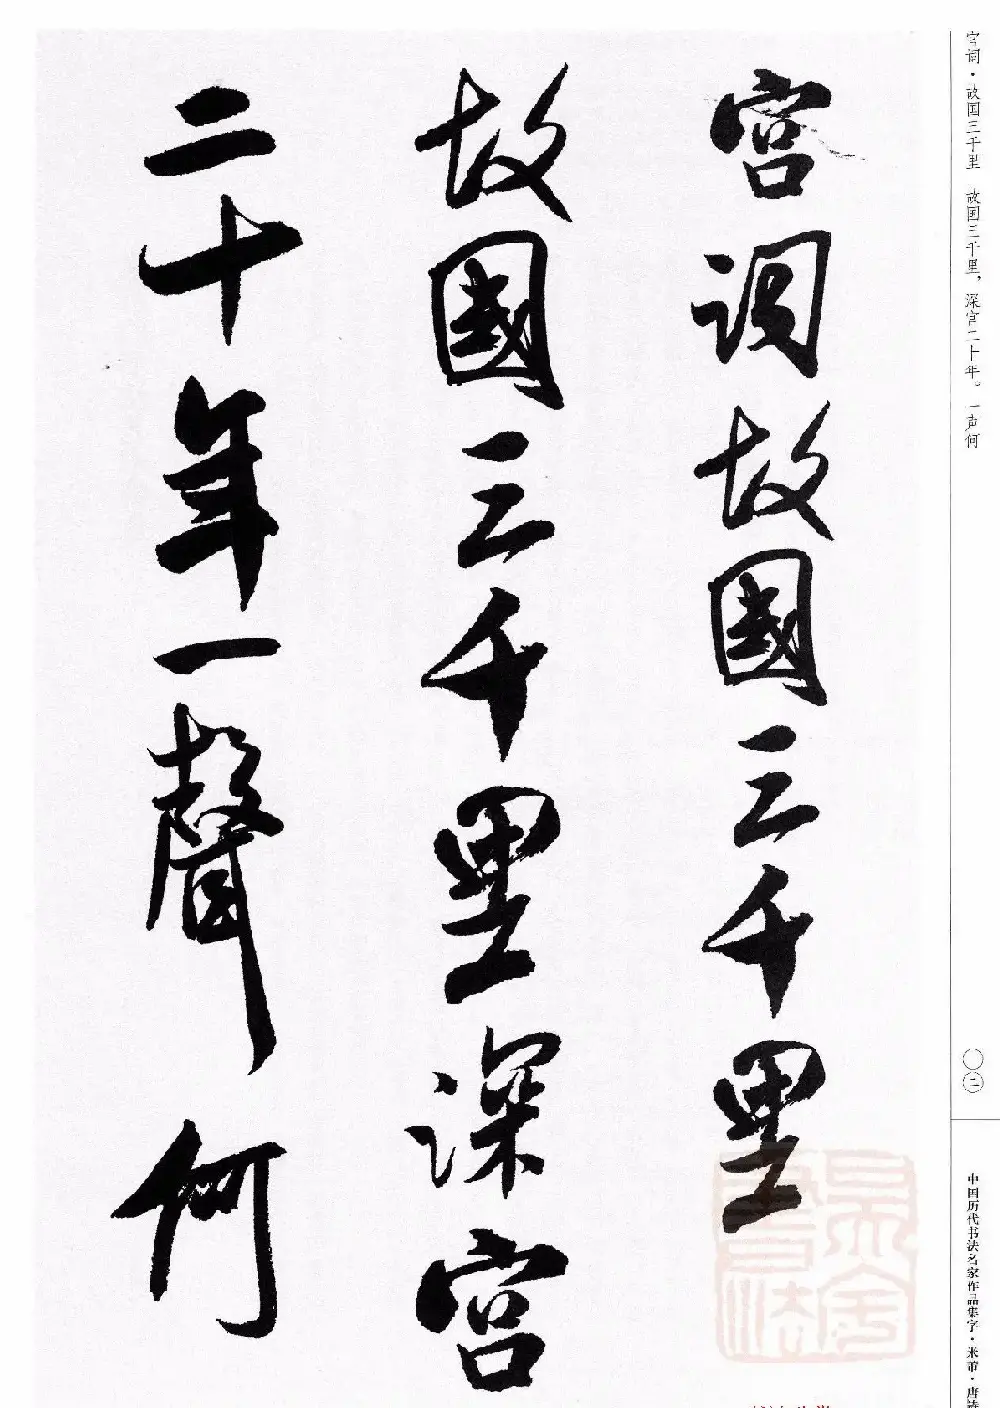 宫词·故国三千里　故国三千里，深宫二十年。一声何
〇〇二
中国历代书法名家作品集字·米芾·唐诗
宮詞故國三千里
故國三千里深宮
二十年一聲何